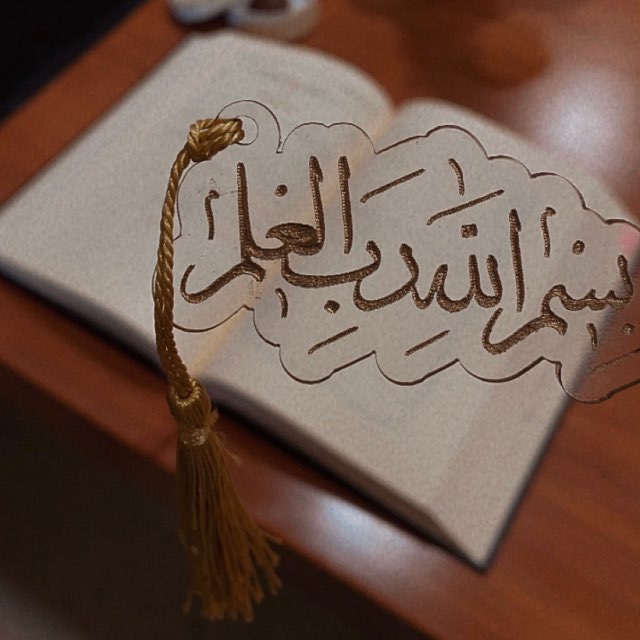 بسم الله رب العلم